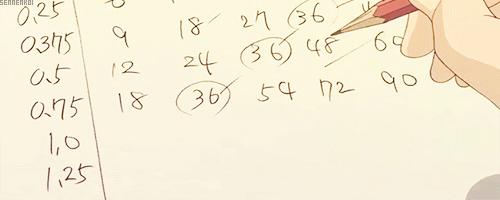 SENNENKOI
0.25 18 27 36
0.375 9 24 36 48
0.5 12 36 54 72 90
0.75 18
1,0
1.25